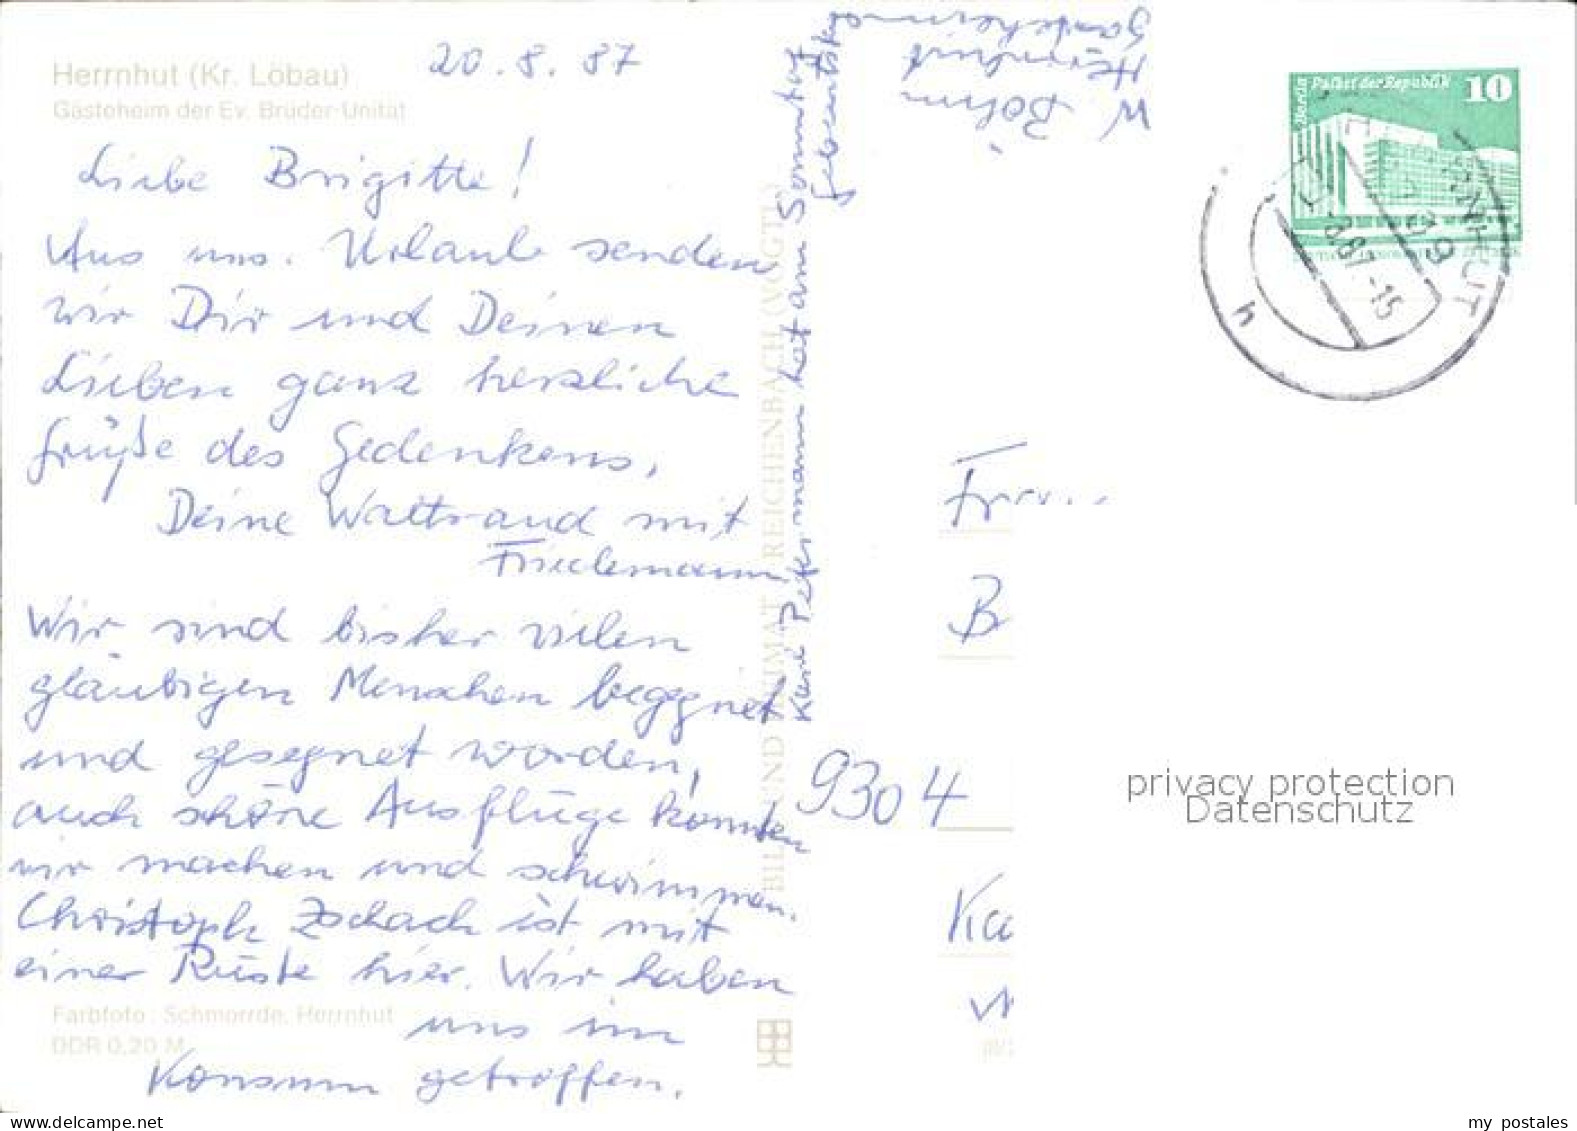 Herrnhut (Kr. Löbau)
Gästeheim der Ev. Brüder-Unität
20.8.87
Liebe Brigitte!
Aus uns. Urlaub senden
wir Dir und Deinen
Lieben ganz herzliche
Grüße des Gedenkens,
Deine Waltraud mit
Friedemann
Wir sind bisher vielen
gläubigen Menschen begegnet
und gesegnet worden,
auch schöne Ausflüge konnten
wir machen und schwimmen.
Christoph Zschach ist mit
einer Rüste hier. Wir haben
uns im
Konsum getroffen.
Farbfoto: Schmorrde, Herrnhut
DDR 0,20 M
BILD UND HEIMAT REICHENBACH (VOGTL)
Petermann hat am Sonntag
Geburtstag
W. Böhm
Herrnhut
Gästeheim
Palast der Republik
10
HERRNHUT
-8.87-15
h
B
9304
Ka
privacy protection
Datenschutz
www.delcampe.net
my postales